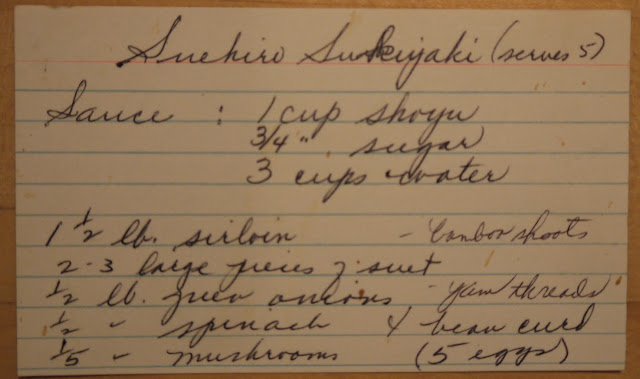 Suehiro Sukiyaki (serves 5)
Sauce : 1 cup shoyu
3/4 " sugar
3 cups water
1 1/2 lb. sirloin - bamboo shoots
2-3 large pieces of suet
1/2 lb. green onions - yam threads
1/2 " spinach 4 bean curd
1/5 " mushrooms (5 eggs)